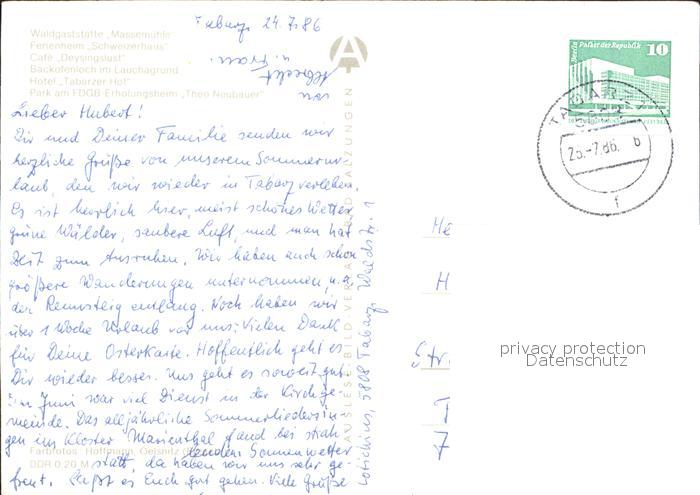 Waldgaststätte „Massemühle"
Ferienheim „Schweizerhaus"
Café „Deysingslust"
Backofenloch im Lauchagrund
Hotel „Tabarzer Hof"
Park am FDGB-Erholungsheim „Theo Neubauer"
Tabarz, 24.7.86
Lieber Hubert!
Dir und Deiner Familie senden wir
herzliche Grüße von unserem Sommerur-
laub, den wir wieder in Tabarz verleben.
Es ist herrlich hier, meist schönes Wetter
grüne Wälder, saubere Luft, und man hat
Zeit zum Ausruhen. Wir haben auch schon
größere Wanderungen unternommen, u.a.
den Rennsteig entlang. Noch haben wir
über 1 Woche Urlaub vor uns. Vielen Dank
für Deine Osterkarte. Hoffentlich geht es
Dir wieder besser. Uns geht es soweit gut.
im Juni war viel Dienst in der Kirchge-
meinde. Das alljährliche Sommerliedersin-
gen im Kloster Marienthal fand bei strah
lendem Sonnenwetter
statt, da haben wir uns sehr ge-
freut. Laßt es Euch gut gehen. Viele Grüße
von
Albrecht
u. Frau.
Farbfotos: Hoffmann, Geisnitz
DDR 0,20 M
AUSLESE-BILD-VERLAG
5808 Tabarz, Waldstr. 1
Berlin Palast der Republik 10
TABARZ
5808
25.-7.86. b
f
He
H
Str.
T
7
privacy protection
Datenschutz